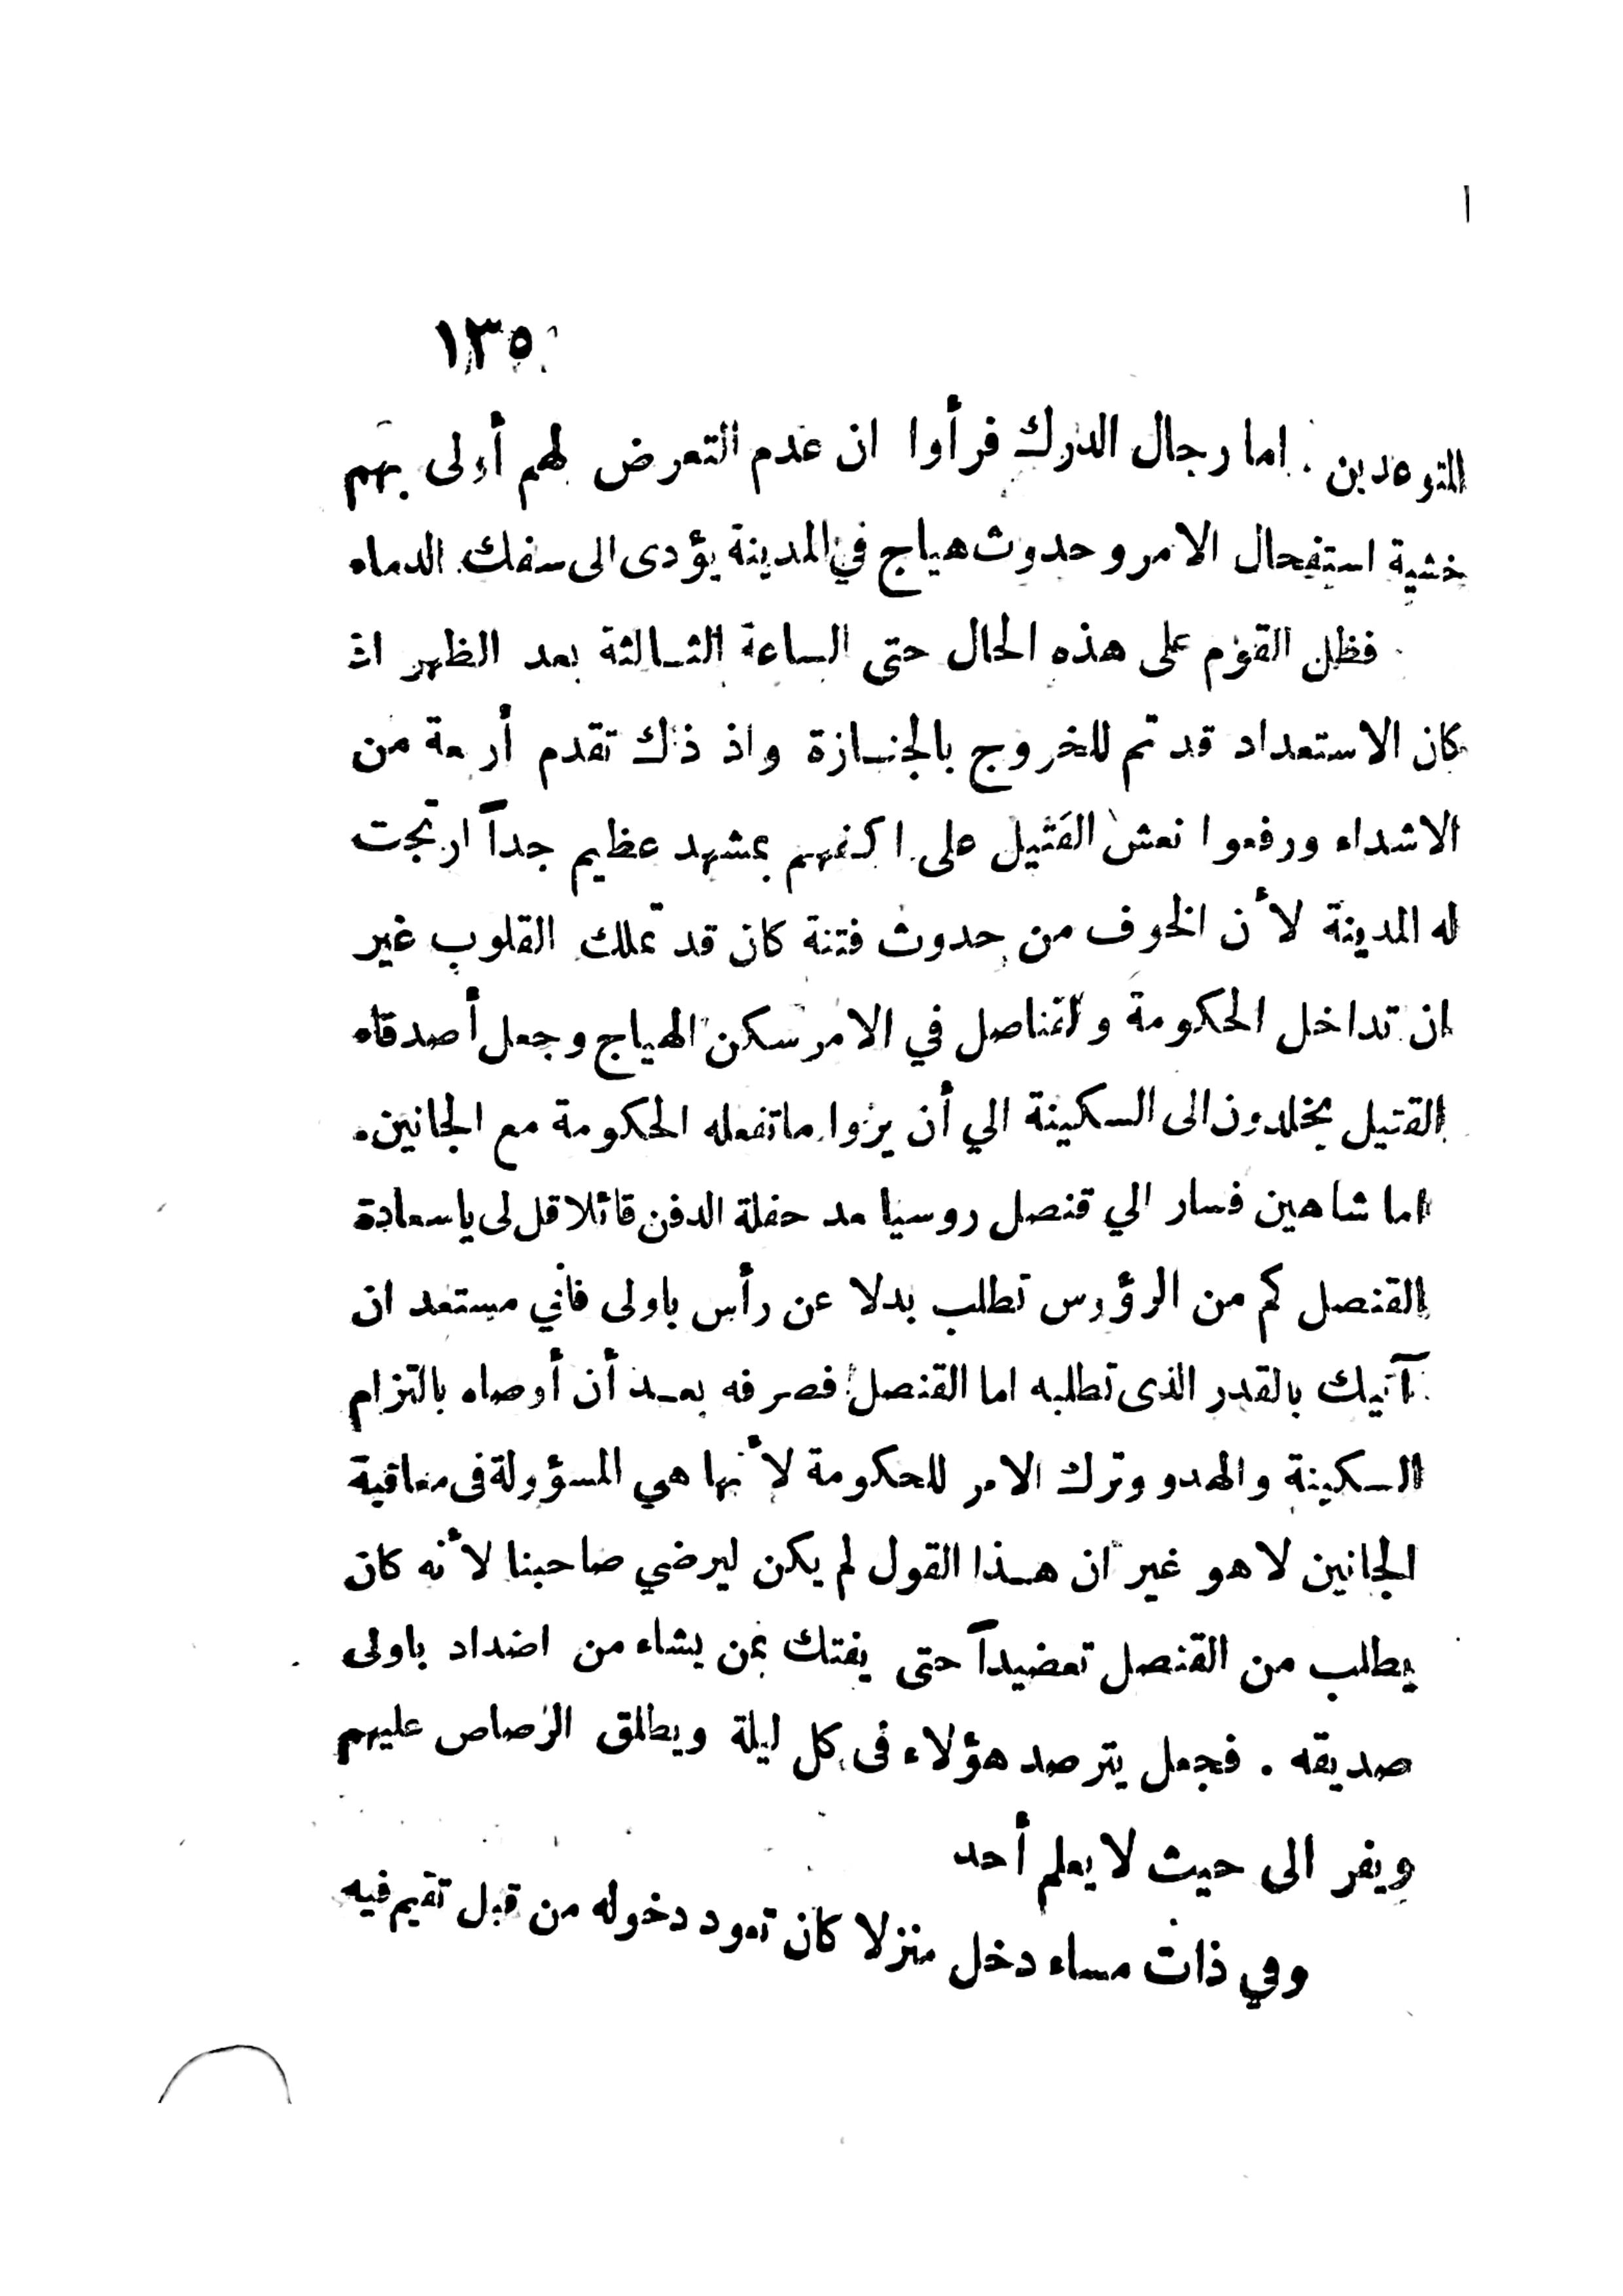 ١٣٥
المتوعدين . اما رجال الدرك فرأوا ان عدم التعرض لهم أولى بهم
خشية استفحال الامر وحدوث هياج في المدينة يؤدى الى سفك الدماء
فظل القوم على هذه الحال حتى الساعة الثالثة بعد الظهر اذ
كان الاستعداد قد تم للخروج بالجنازة واذ ذاك تقدم أربعة من
الاشداء ورفعوا نعش القتيل على اكفهم بمشهد عظيم جداً ارتجت
له المدينة لأن الخوف من حدوث فتنة كان قد تملك القلوب غير
ان تداخل الحكومة والقناصل في الامر سكن الهياج وجعل أصدقاء
القتيل يخلدون الى السكينة الي أن يروا ما تفعله الحكومة مع الجانين.
اما شاهين فسار الي قنصل روسيا بعد حفلة الدفن قائلا قل لى يا سعادة
القنصل كم من الرؤوس تطلب بدلا عن رأس باولى فأني مستعد ان
آتيك بالقدر الذى تطلبه اما القنصل فصرفه بعد أن أوصاه بالتزام
السكينة والهدو وترك الامر للحكومة لأنها هي المسؤولة فى معاقبة
الجانين لا هو غير ان هذا القول لم يكن ليرضي صاحبنا لأنه كان
يطلب من القنصل تعضيداً حتى يفتك بمن يشاء من اضداد باولى
صديقه . فجعل يترصد هؤلاء فى كل ليلة ويطلق الرصاص عليهم
ويفر الى حيث لا يعلم أحد
وفي ذات مساء دخل منزلا كان تعود دخوله من قبل تقيم فيه